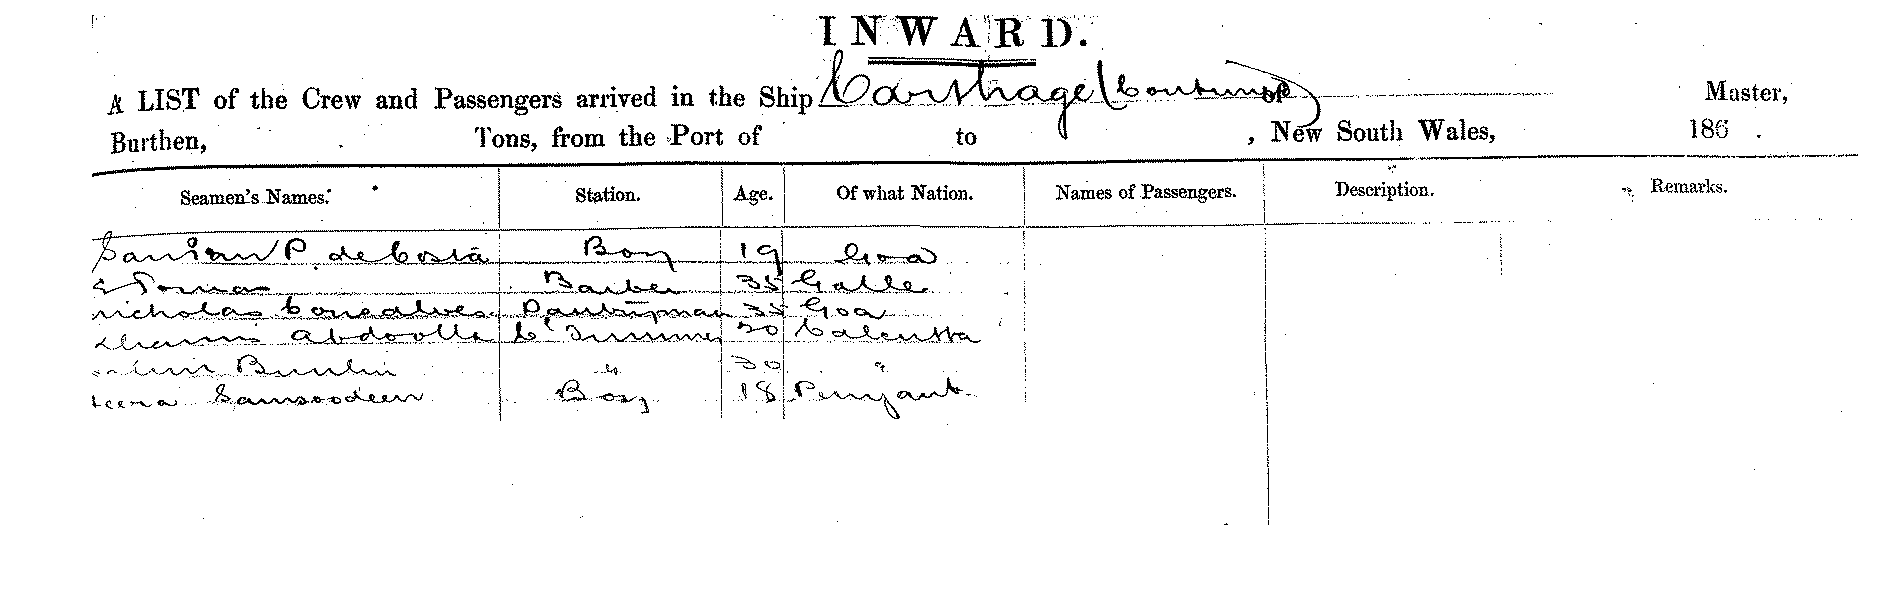 INWARD.
A LIST of the Crew and Passengers arrived in the Ship Carthage (Continued of Master,
Burthen, Tons, from the Port of to , New South Wales, 186 .
Seamen's Names. Station. Age. Of what Nation. Names of Passengers. Description. Remarks.
P. de Costa Boy 19 Goa
Barber 35 Galle
Nicholas Gonsalves Pantryman 35 Goa
Abdoolla Cl Trimmer 20 Calcutta
30 "
Samsoodeen Boy 18 Punjaub